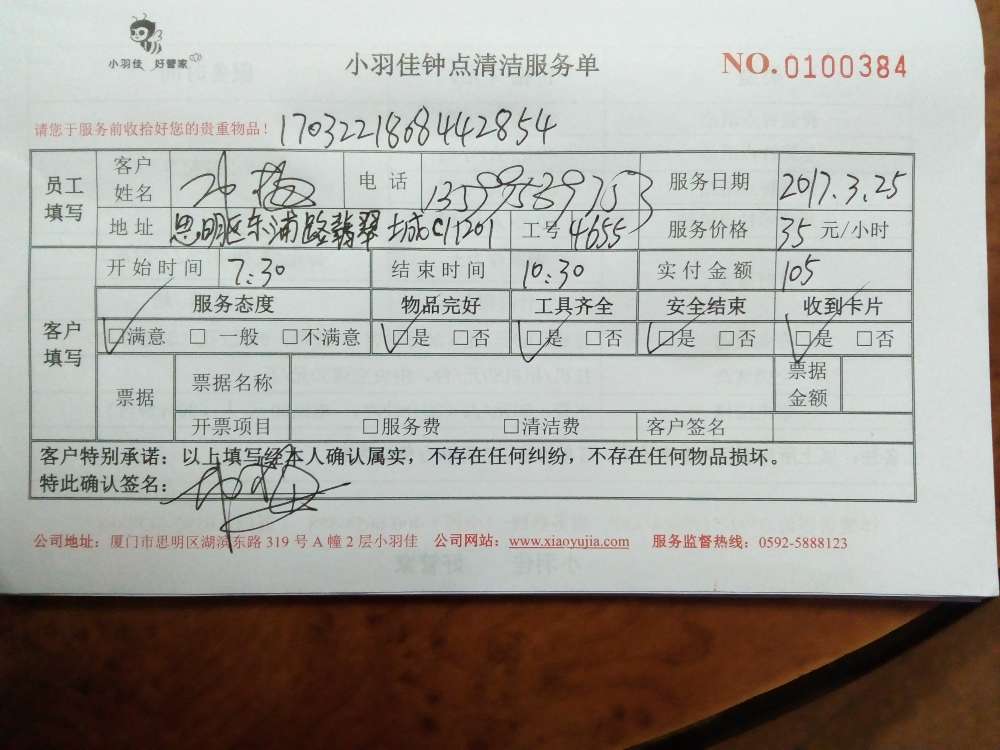 小羽佳 好管家
小羽佳钟点清洁服务单
NO.0100384
请您于服务前收拾好您的贵重物品! 170322186844 2854
员工填写 客户姓名 电话 服务日期 2017.3.25
地址 思明区东浦路翡翠城C1201 工号 4655 服务价格 35 元/小时
开始时间 7:30 结束时间 10:30 实付金额 105
客户填写 服务态度 物品完好 工具齐全 安全结束 收到卡片
□满意 □ 一般 □不满意 □是 □否 □是 □否 □是 □否 □是 □否
票据 票据名称 票据金额
开票项目 □服务费 □清洁费 客户签名
客户特别承诺：以上填写经本人确认属实，不存在任何纠纷，不存在任何物品损坏。
特此确认签名：
公司地址：厦门市思明区湖滨东路 319 号 A 幢 2 层小羽佳 公司网站：www.xiaoyujia.com 服务监督热线：0592-5888123